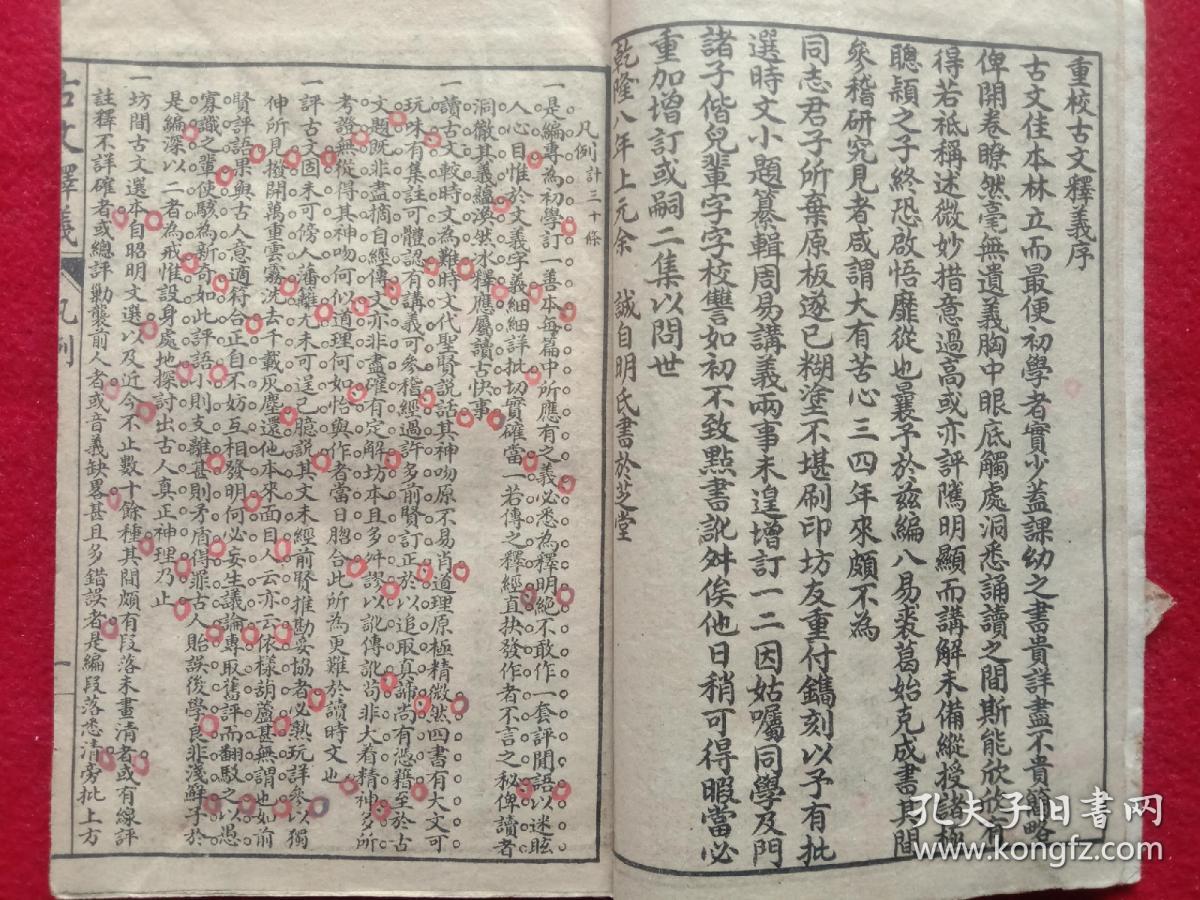 重校古文釋義序
古文佳本林立而最便初學者實少蓋課幼之書貴詳盡不貴簡略
俾開卷瞭然毫無遺義胸中眼底觸處洞悉誦讀之間斯能欣欣有
得若祇稱述微妙措意過高或亦評隲明顯而講解未備縱授諸極
聰頴之子終恐啟悟靡從也曩予於兹編八易裘葛始克成書其間
叅稽研究見者咸謂大有苦心三四年來頗不為
同志君子所棄原板遂已糊塗不堪刷印坊友重付鐫刻以予有批
選時文小題纂輯周易講義兩事未遑增訂一二因姑囑同學及門
諸子偕兒輩字字校讐如初不致點書訛舛俟他日稍可得暇當必
重加增訂或嗣二集以問世
乾隆八年上元余 誠自明氏書於芝堂
凡例計三十條
一是編專為初學訂一善本每篇中所應有之義必悉為釋明絕不敢作一套評閒語以迷眩
人心目惟於文義字義細細詳批切實確當一若傳之釋經直抉發作者不言之秘俾讀者
洞徹其義蘊渙然冰釋應屬讀古快事
一讀古文較時文為難時文代聖賢說話其神吻原不易肖道理原極精微然四書有大文可
玩味有集註可體認有講義可參稽經過許多前賢訂正於以追取真諦尚有憑藉至於古
文題既非盡摘自經傳文亦非盡確有定解坊本且多舛謬以訛傳訛苟非大着精神多所
考證無從得其神吻何似道理何如恰與作者當日脗合此所為更難於讀時文也
一評古文固未可傍人藩籬尤未可逞己臆說其文未經前賢推勘妥協者必熟玩詳參以獨
伸所見撥開萬重雲霧洗去千載灰塵還他本來面目人云亦云依樣胡蘆甚無謂也如前
賢評語果與古人意適符合正自不妨互相發明何必妄生議論專取舊評而翻駁之以愚
寡識之輩使駭為新奇如此評語小則支離甚則矛盾得罪古人貽誤後學良非淺鮮予於
是編深以二者為戒惟設身處地探討出古人真正神理乃止
一坊間古文選本自昭明文選以及近今不止數十餘種其間頗有段落未畫清者或有線評
註釋不詳確者或總評勦襲前人者或音義缺畧甚且多錯誤者是編段落悉清旁批上方
古文釋義
凡例
一
孔夫子旧书网
www.kongfz.com